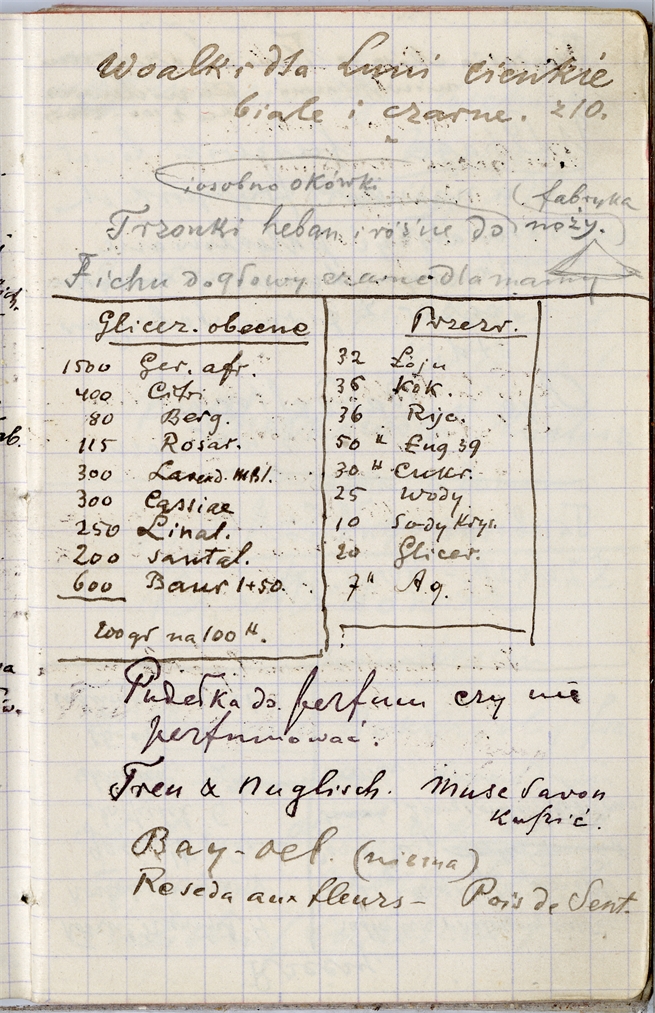 Woalki dla Luni cienkie
białe i czarne. z10.
i osobno okówki
(fabryka
Trzonki heban. i rożne do noży.
Fichu do głowy czarne dla mamy
Glicer. obecne
1500 Ger. afr.
400 Citri
80 Berg.
115 Rosar.
300 Lavend. MBl.
300 Cassiae
250 Linal.
200 Santal.
600 Baur 1+50.
200gr na 100 ℔.
Przezr.
32 Łoju
36 Kok.
36 Rije.
50 ℔ Ług 39
30 ℔ Cukr.
25 Wody
10 Sody Krys.
20 Glicer.
7 ℔ Aq.
Pudełka do perfum czy nie
perfumować.
Treu & Nuglisch. Muse Savon
Kupić.
Bay-oel. (niema)
Reseda aux fleurs – Pois de Sent.